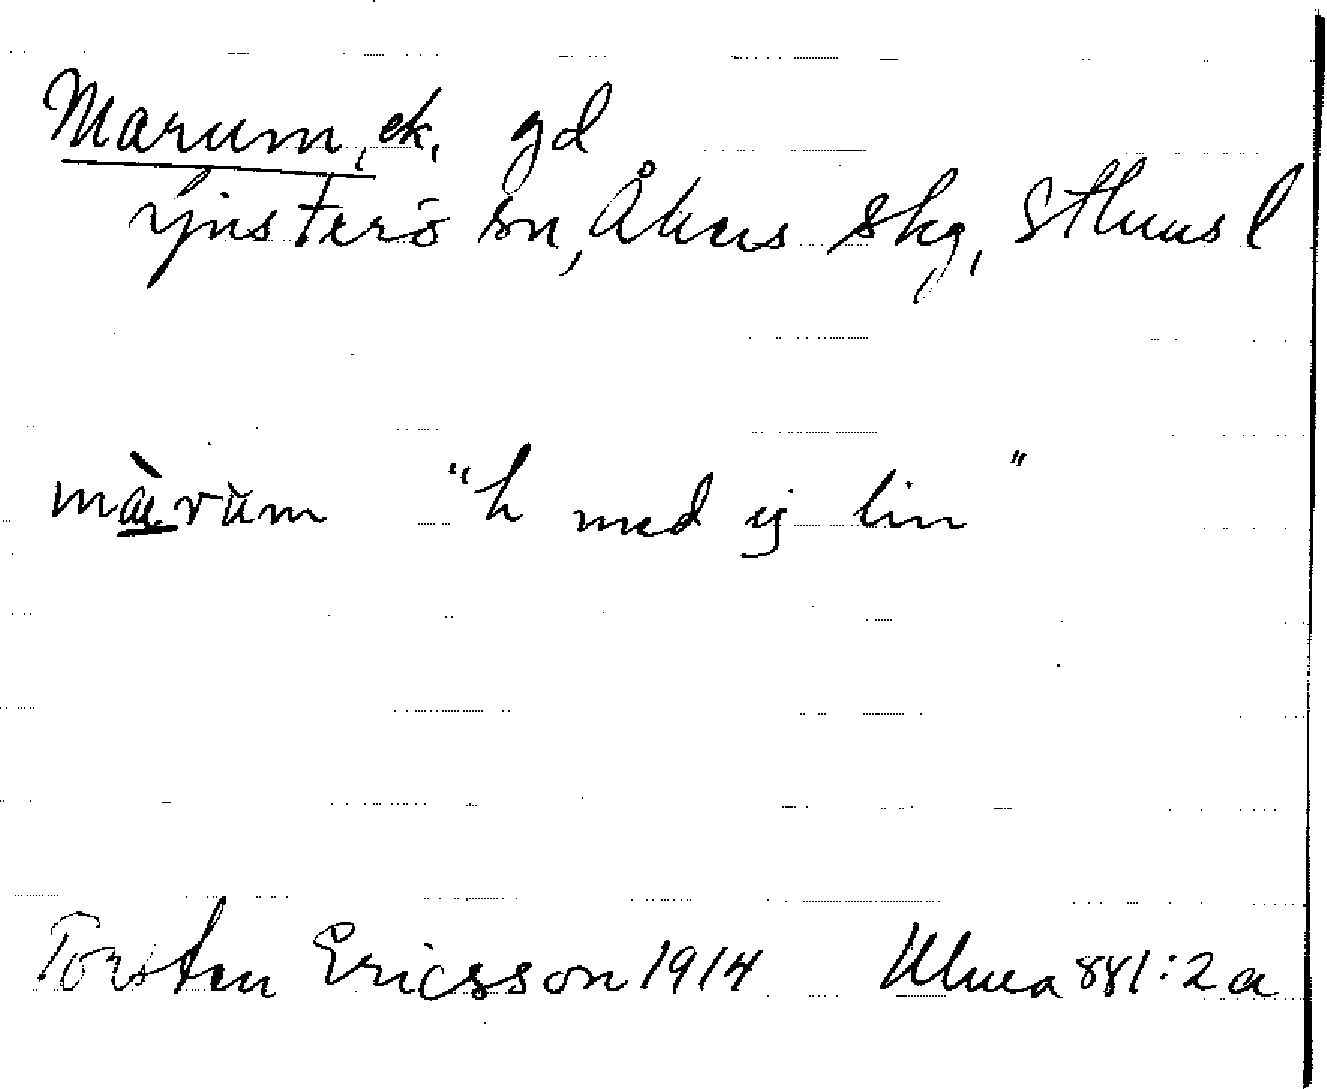 Marum, ek, gd
Ljusterö sn, Åkers skg, Sthms l
màrùm "h med ej lin"
Torsten Ericsson 1914 Uluea 881:2a